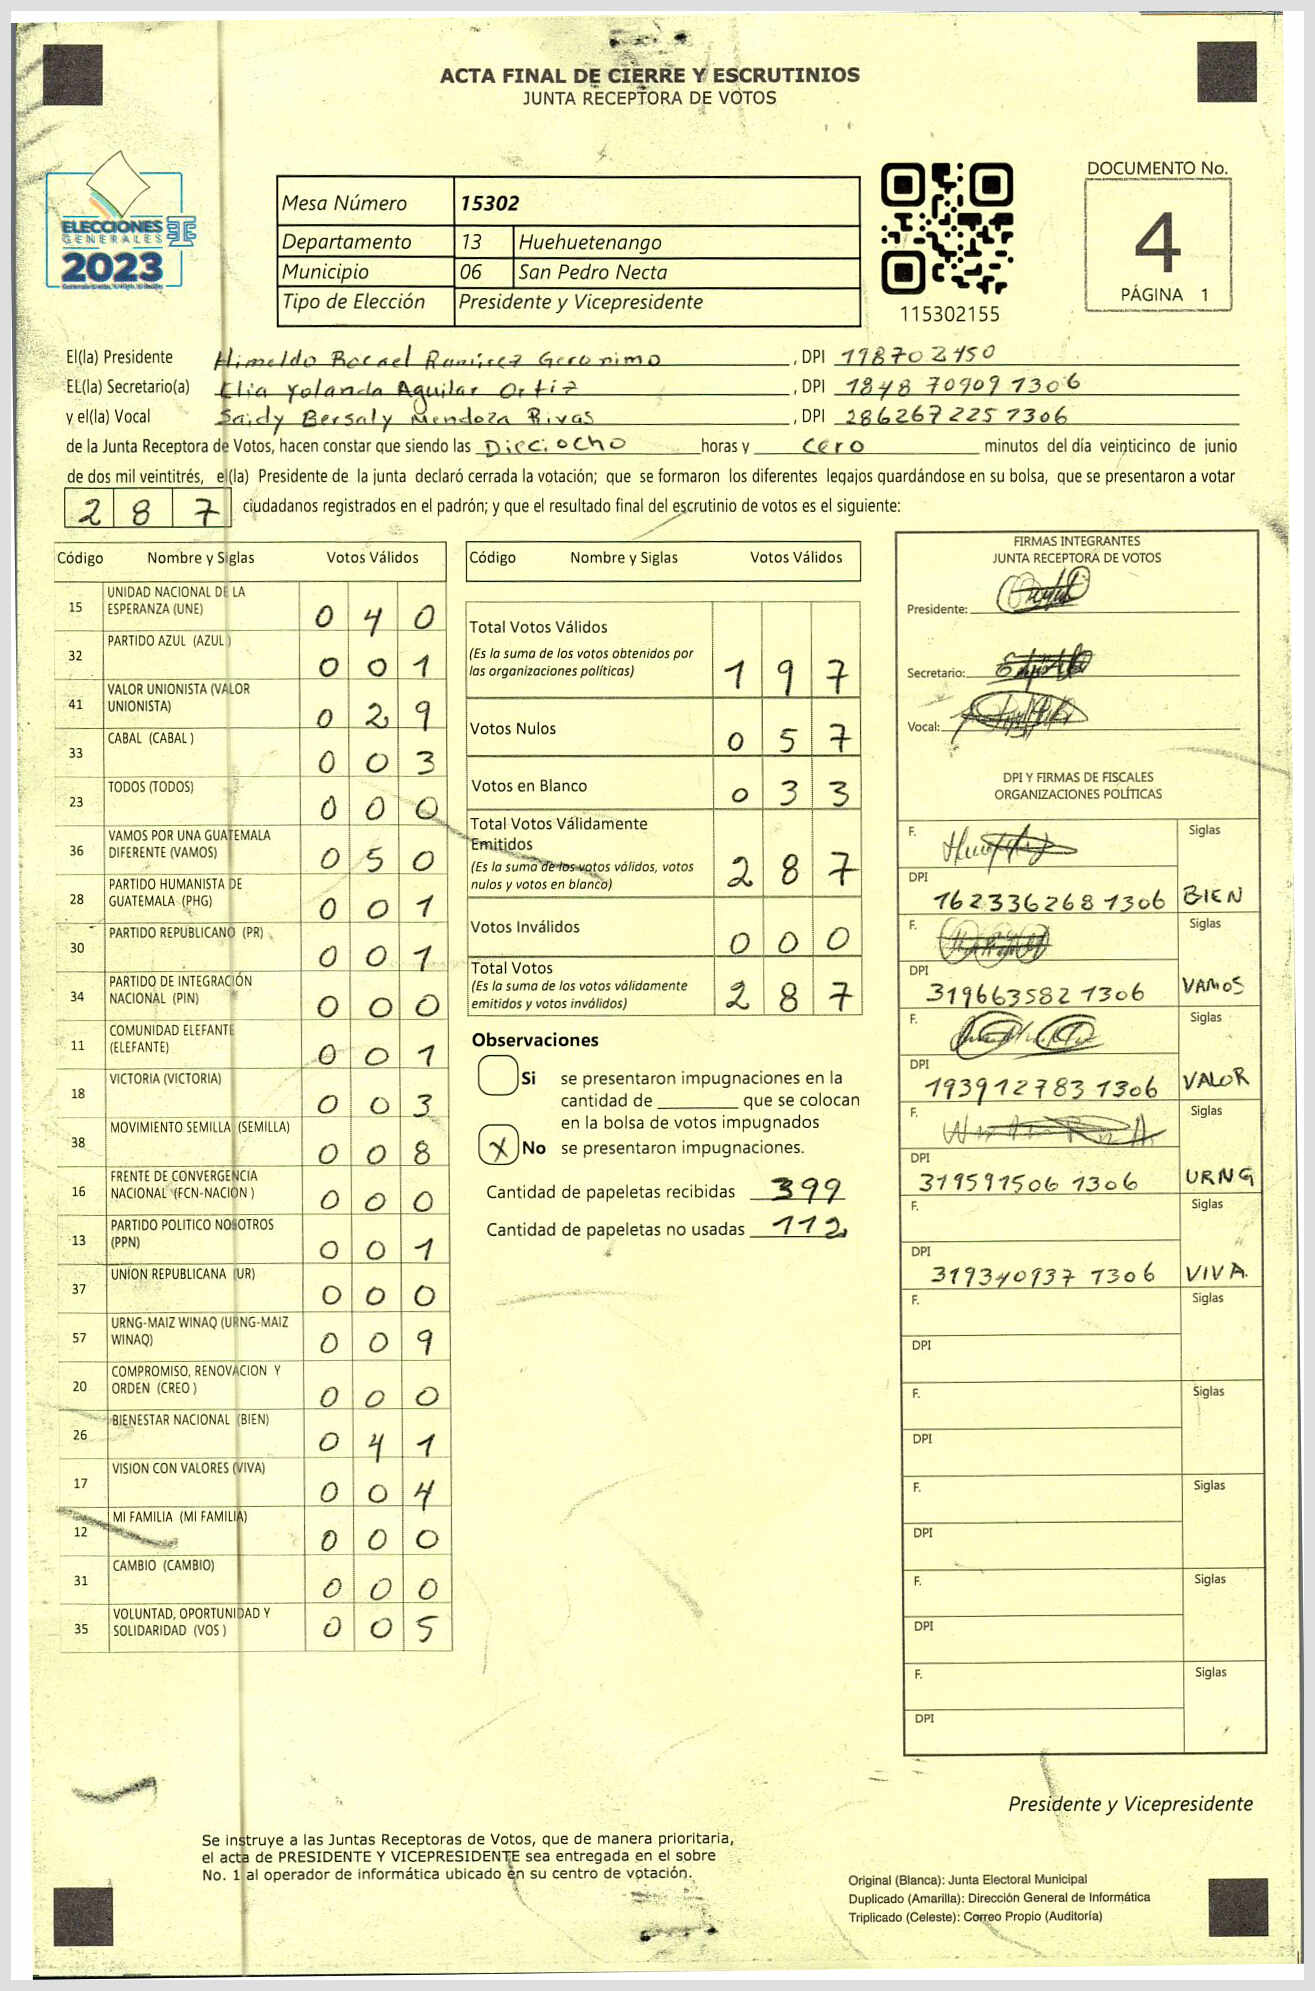 ACTA FINAL DE CIERRE Y ESCRUTINIOS
JUNTA RECEPTORA DE VOTOS
ELECCIONES
GENERALES
2023
Mesa Número 15302
Departamento 13 Huehuetenango
Municipio 06 San Pedro Necta
Tipo de Elección Presidente y Vicepresidente
115302155
DOCUMENTO No.
4
PÁGINA 1
El(la) Presidente Himeldo Ramírez Geronimo , DPI 198702450
EL(la) Secretario(a) Elia Yolanda Aguilar Ortiz , DPI 1848 70909 1306
y el(la) Vocal Saidy Bersaly Mendoza Rivas , DPI 286267225 1306
de la Junta Receptora de Votos, hacen constar que siendo las Dieciocho horas y cero minutos del día veinticinco de junio
de dos mil veintitrés, el(la) Presidente de la junta declaró cerrada la votación; que se formaron los diferentes legajos guardándose en su bolsa, que se presentaron a votar
2 8 7 ciudadanos registrados en el padrón; y que el resultado final del escrutinio de votos es el siguiente:
Código Nombre y Siglas Votos Válidos
15 UNIDAD NACIONAL DE LA ESPERANZA (UNE) 0 4 0
32 PARTIDO AZUL (AZUL ) 0 0 1
41 VALOR UNIONISTA (VALOR UNIONISTA) 0 2 9
33 CABAL (CABAL ) 0 0 3
23 TODOS (TODOS) 0 0 0
36 VAMOS POR UNA GUATEMALA DIFERENTE (VAMOS) 0 5 0
28 PARTIDO HUMANISTA DE GUATEMALA (PHG) 0 0 1
30 PARTIDO REPUBLICANO (PR) 0 0 1
34 PARTIDO DE INTEGRACIÓN NACIONAL (PIN) 0 0 0
11 COMUNIDAD ELEFANTE (ELEFANTE) 0 0 1
18 VICTORIA (VICTORIA) 0 0 3
38 MOVIMIENTO SEMILLA (SEMILLA) 0 0 8
16 FRENTE DE CONVERGENCIA NACIONAL (FCN-NACION ) 0 0 0
13 PARTIDO POLITICO NOSOTROS (PPN) 0 0 1
37 UNION REPUBLICANA (UR) 0 0 0
57 URNG-MAIZ WINAQ (URNG-MAIZ WINAQ) 0 0 9
20 COMPROMISO, RENOVACION Y ORDEN (CREO ) 0 0 0
26 BIENESTAR NACIONAL (BIEN) 0 4 1
17 VISION CON VALORES (VIVA) 0 0 4
12 MI FAMILIA (MI FAMILIA) 0 0 0
31 CAMBIO (CAMBIO) 0 0 0
35 VOLUNTAD, OPORTUNIDAD Y SOLIDARIDAD (VOS ) 0 0 5
Código Nombre y Siglas Votos Válidos
Total Votos Válidos
(Es la suma de los votos obtenidos por
las organizaciones políticas) 1 9 7
Votos Nulos 0 5 7
Votos en Blanco 0 3 3
Total Votos Válidamente
Emitidos
(Es la suma de los votos válidos, votos
nulos y votos en blanco) 2 8 7
Votos Inválidos 0 0 0
Total Votos
(Es la suma de los votos válidamente
emitidos y votos inválidos) 2 8 7
Observaciones
Si se presentaron impugnaciones en la
cantidad de ________ que se colocan
en la bolsa de votos impugnados
X No se presentaron impugnaciones.
Cantidad de papeletas recibidas 399
Cantidad de papeletas no usadas 112
FIRMAS INTEGRANTES
JUNTA RECEPTORA DE VOTOS
Presidente:
Secretario:
Vocal:
DPI Y FIRMAS DE FISCALES
ORGANIZACIONES POLÍTICAS
F. Siglas
DPI 162336268 1306 BIEN
F. Siglas
DPI 319663582 1306 VAMOS
F. Siglas
DPI 193912783 1306 VALOR
F. Siglas
DPI 319591506 1306 URNG
F. Siglas
DPI 319340937 1306 VIVA
F. Siglas
DPI
F. Siglas
DPI
F. Siglas
DPI
F. Siglas
DPI
F. Siglas
DPI
Presidente y Vicepresidente
Se instruye a las Juntas Receptoras de Votos, que de manera prioritaria,
el acta de PRESIDENTE Y VICEPRESIDENTE sea entregada en el sobre
No. 1 al operador de informática ubicado en su centro de votación.
Original (Blanca): Junta Electoral Municipal
Duplicado (Amarilla): Dirección General de Informática
Triplicado (Celeste): Correo Propio (Auditoría)